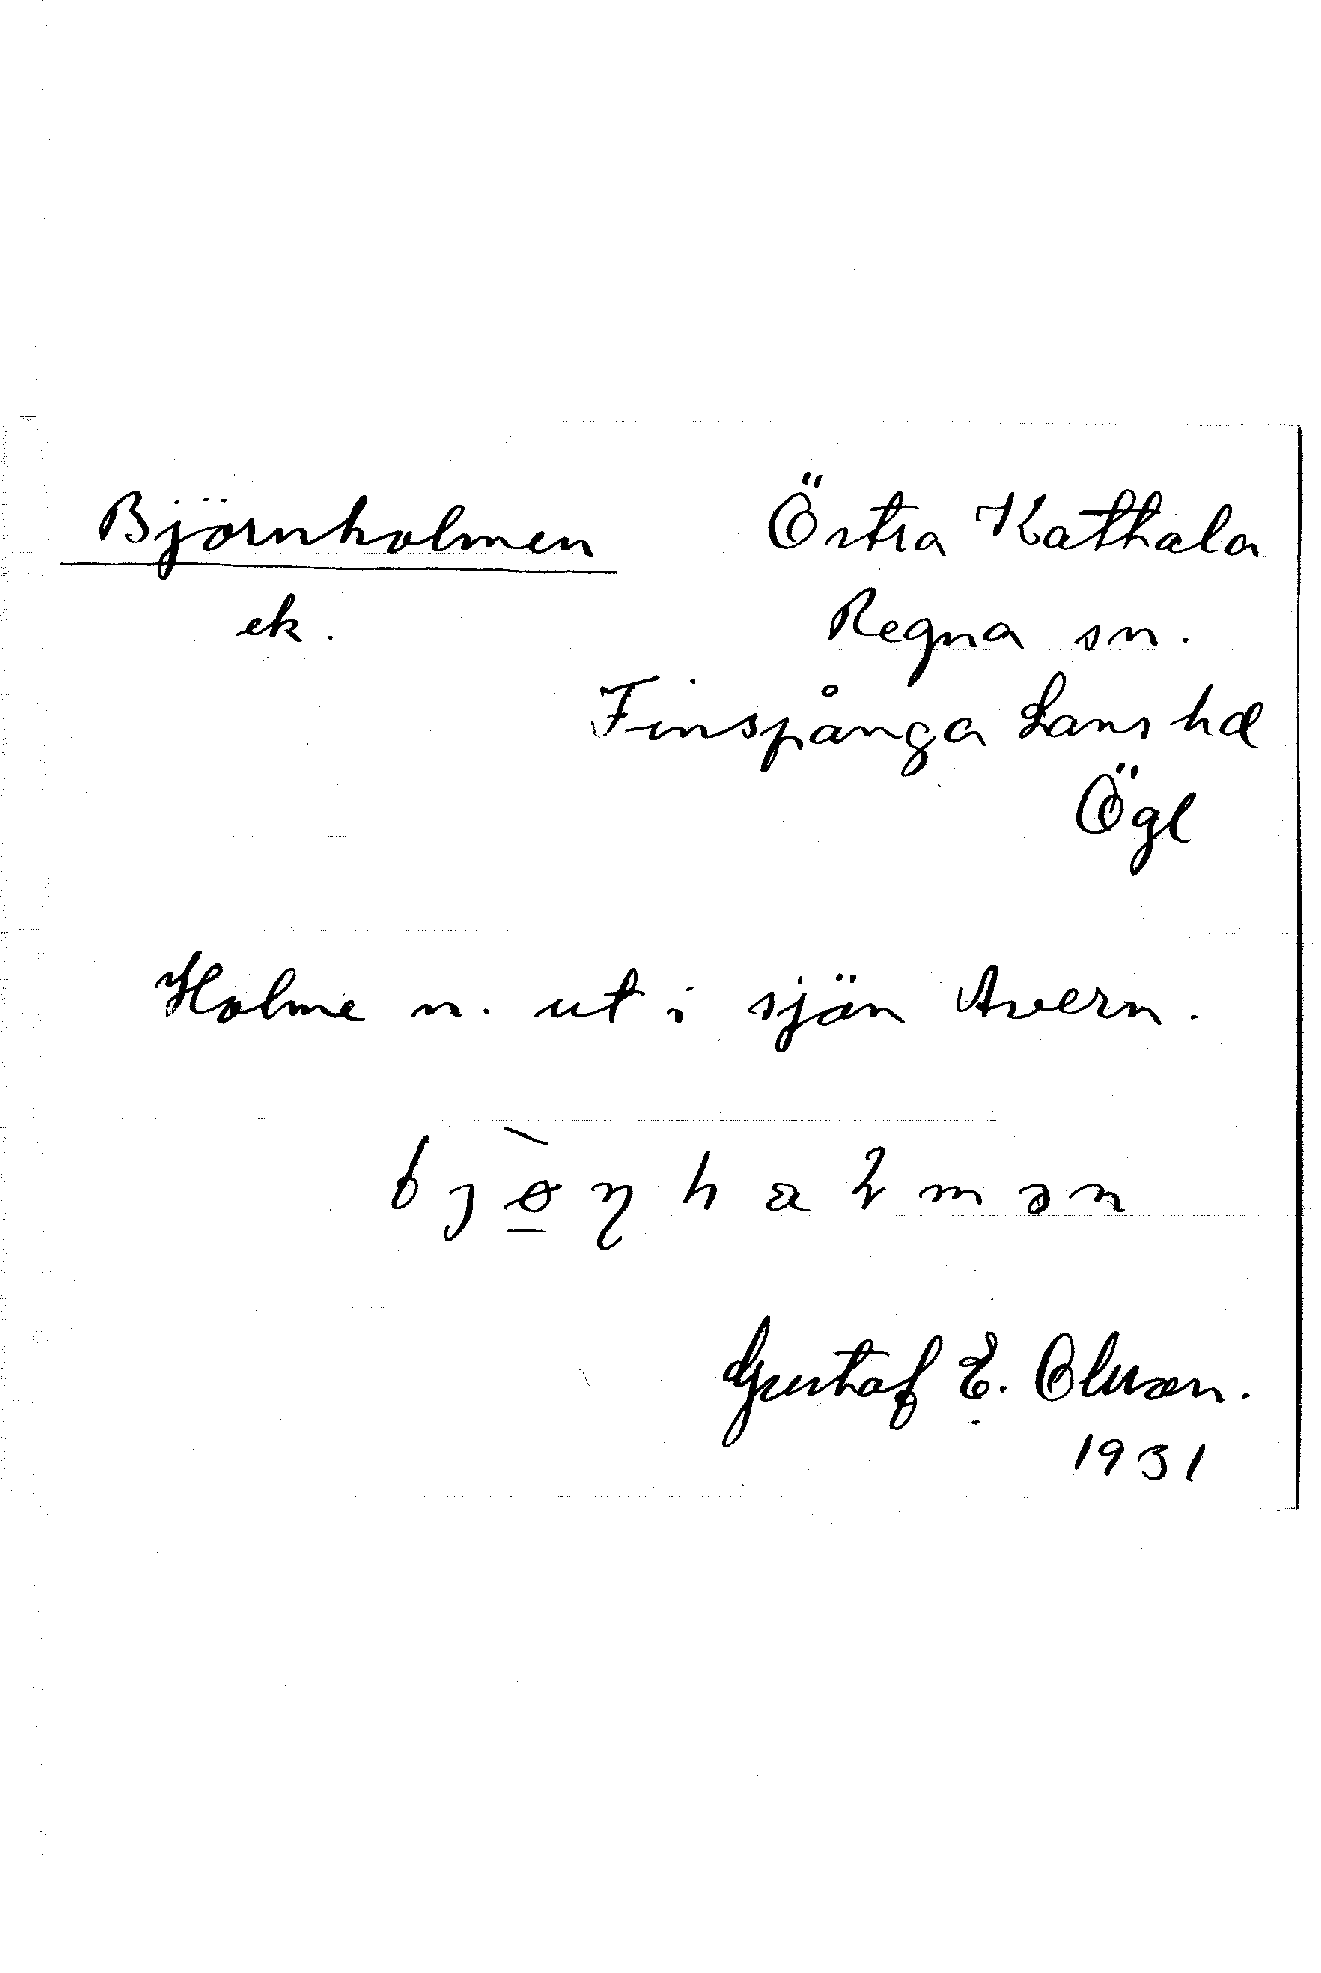 Björnholmen Östra Kathala
ek. Regna sn.
Finspånga Läns hd
Ögl
Holme n. ut i sjön Avern.
bjø̱̀ɳhaɽmən
Gustaf E. Olsson.
1931